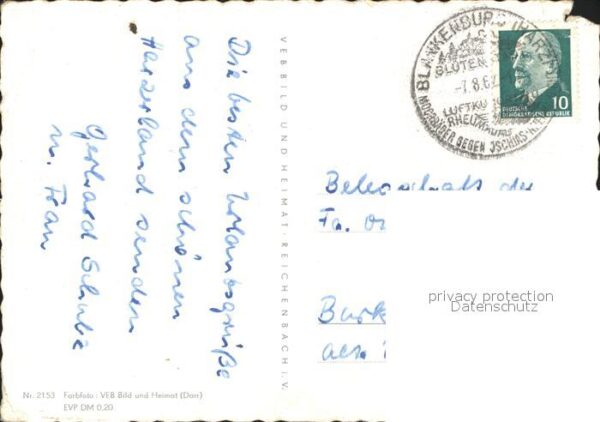 Die besten Urlaubsgrüße
aus dem schönen
Harzerland senden
Gerhard Schulze
u. Frau
VEB BILD UND HEIMAT · REICHENBACH I. V.
BLANKENBURG (HARZ)
BLÜTEN
-7.8.62
LUFTKU
RHEUMA
MOORBÄDER GEGEN ISCHIAS
10
DEUTSCHE
DEMOKRATISCHE REPUBLIK
Belegschaft der
Fa.
Burk
privacy protection
Datenschutz
Nr. 2153 Farbfoto: VEB Bild und Heimat (Darr)
EVP DM 0,20